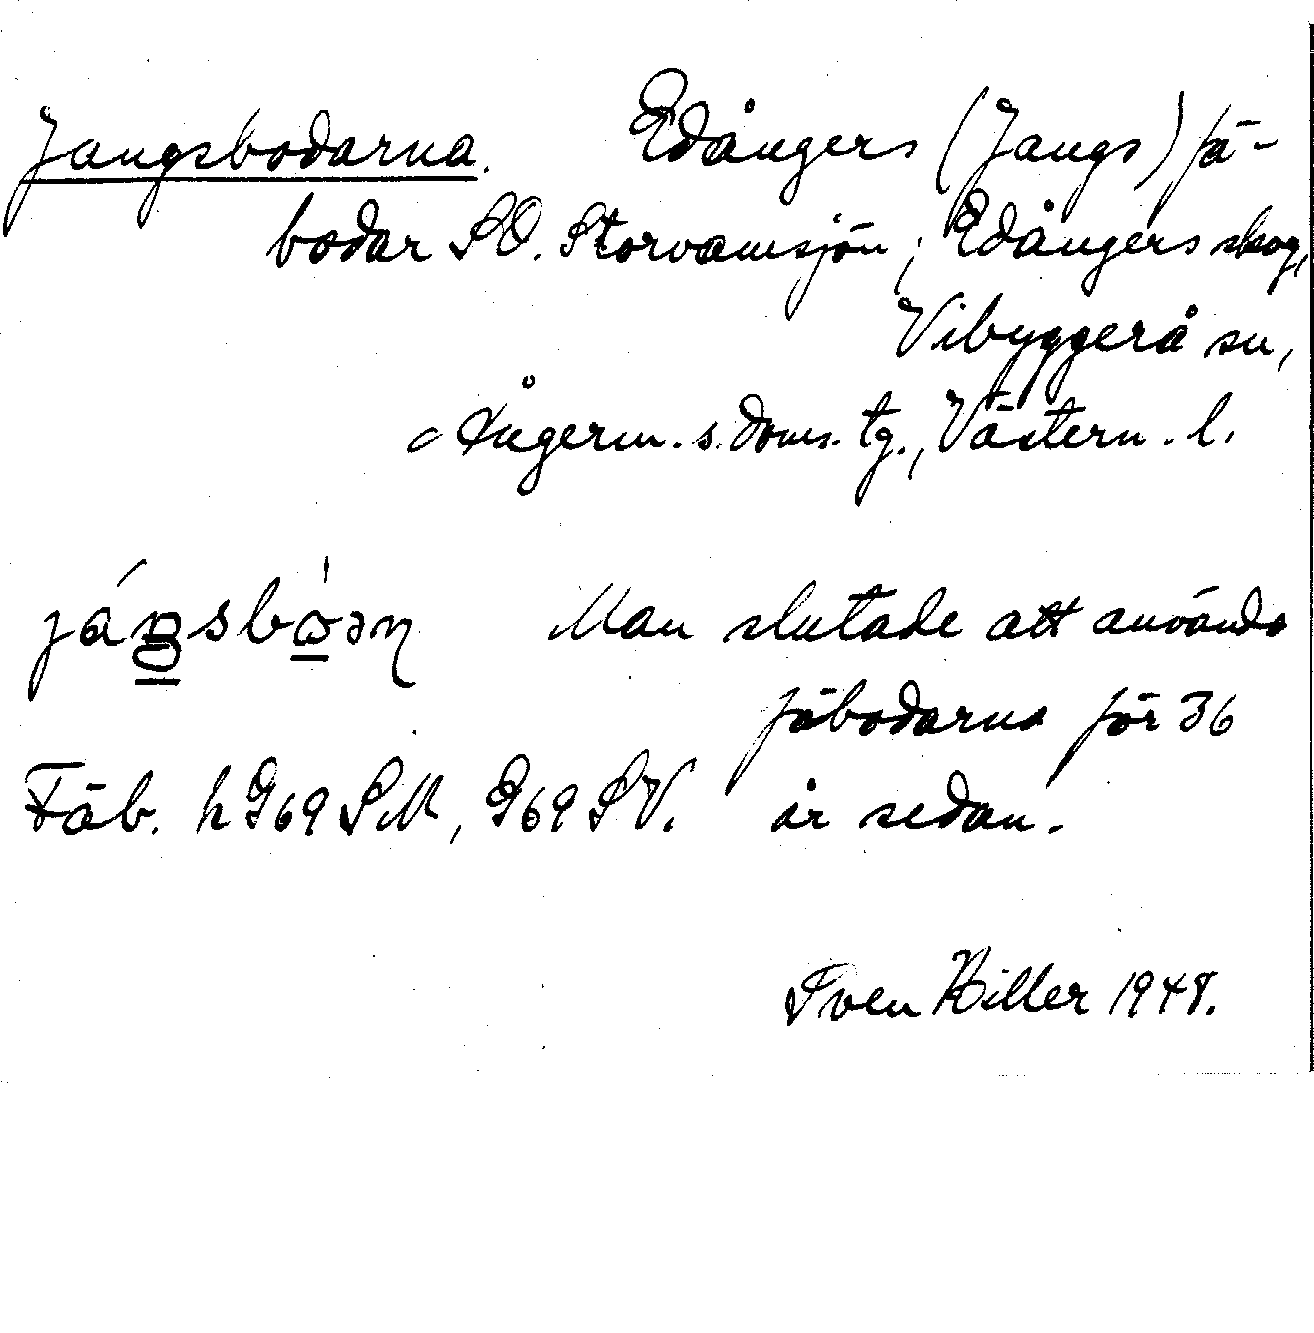 Jangsbodarna. Edångers (Jangs) fä-
bodar SO. Storvamsjön; Edångers skog,
Vibyggerå sn,
Ångerm. s. doms. tg., Västern. l.
Man slutade att använda
fäbodarna för 36
Fäb. h G69 SM, G69 SV. år sedan.
Sven Hiller 1948.